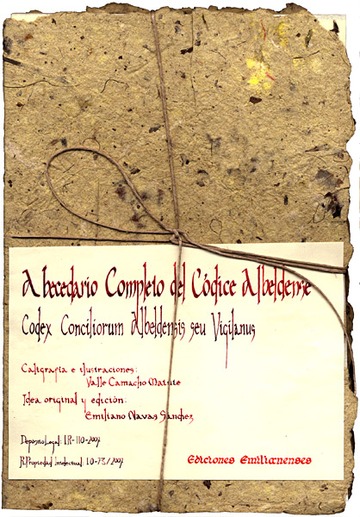 Abecedario Completo del Códice Albeldense
Codex Conciliorum Albeldensis seu Vigilanus
Caligrafía e ilustraciones:
Valle Camacho Matute
Idea original y edición:
Emiliano Navas Sánchez
Deposito Legal: LR-110-2007
R. Propiedad Intelectual:
Ediciones Emilianenses